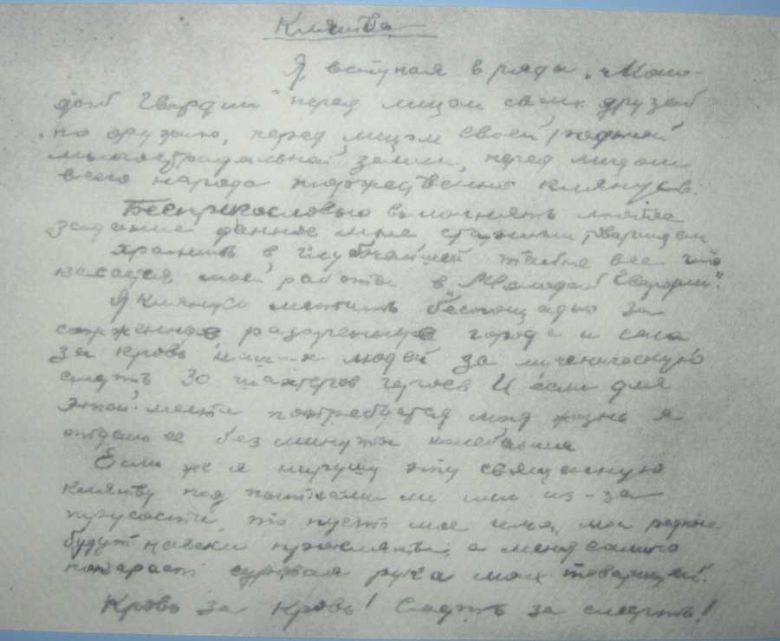 Клятва
Я вступая в ряды „Моло-
дой Гвардии" перед лицом своих друзей
по оружию, перед лицом своей родной
многострадальной земли, перед лицом
всего народа торжественно клянусь:
Беспрекословно выполнять любое
задание данное мне старшим товарищем
хранить в глубочайшей тайне все что
касается моей работы в „Молодой Гвардии".
Я клянусь мстить беспощадно за
сожженные разоренные города и села
за кровь наших людей за мученическую
смерть 30 шахтеров героев И если для
этой мести потребуется моя жизнь я
отдам ее без минуты колебания
Если же я нарушу эту священную
клятву под пытками ли или из-за
трусости, то пусть мое имя, мои родные
будут навеки прокляты, а меня самого
покарает суровая рука моих товарищей.
Кровь за Кровь! Смерть за смерть!